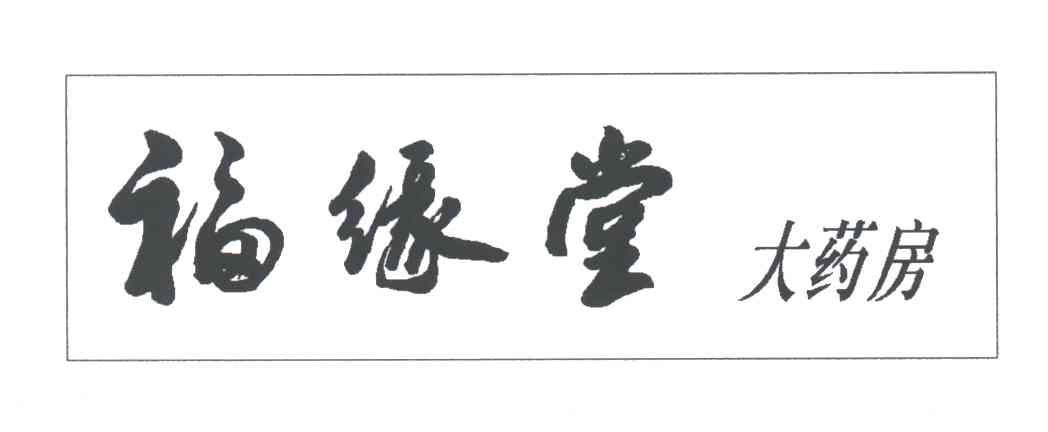 福缘堂大药房